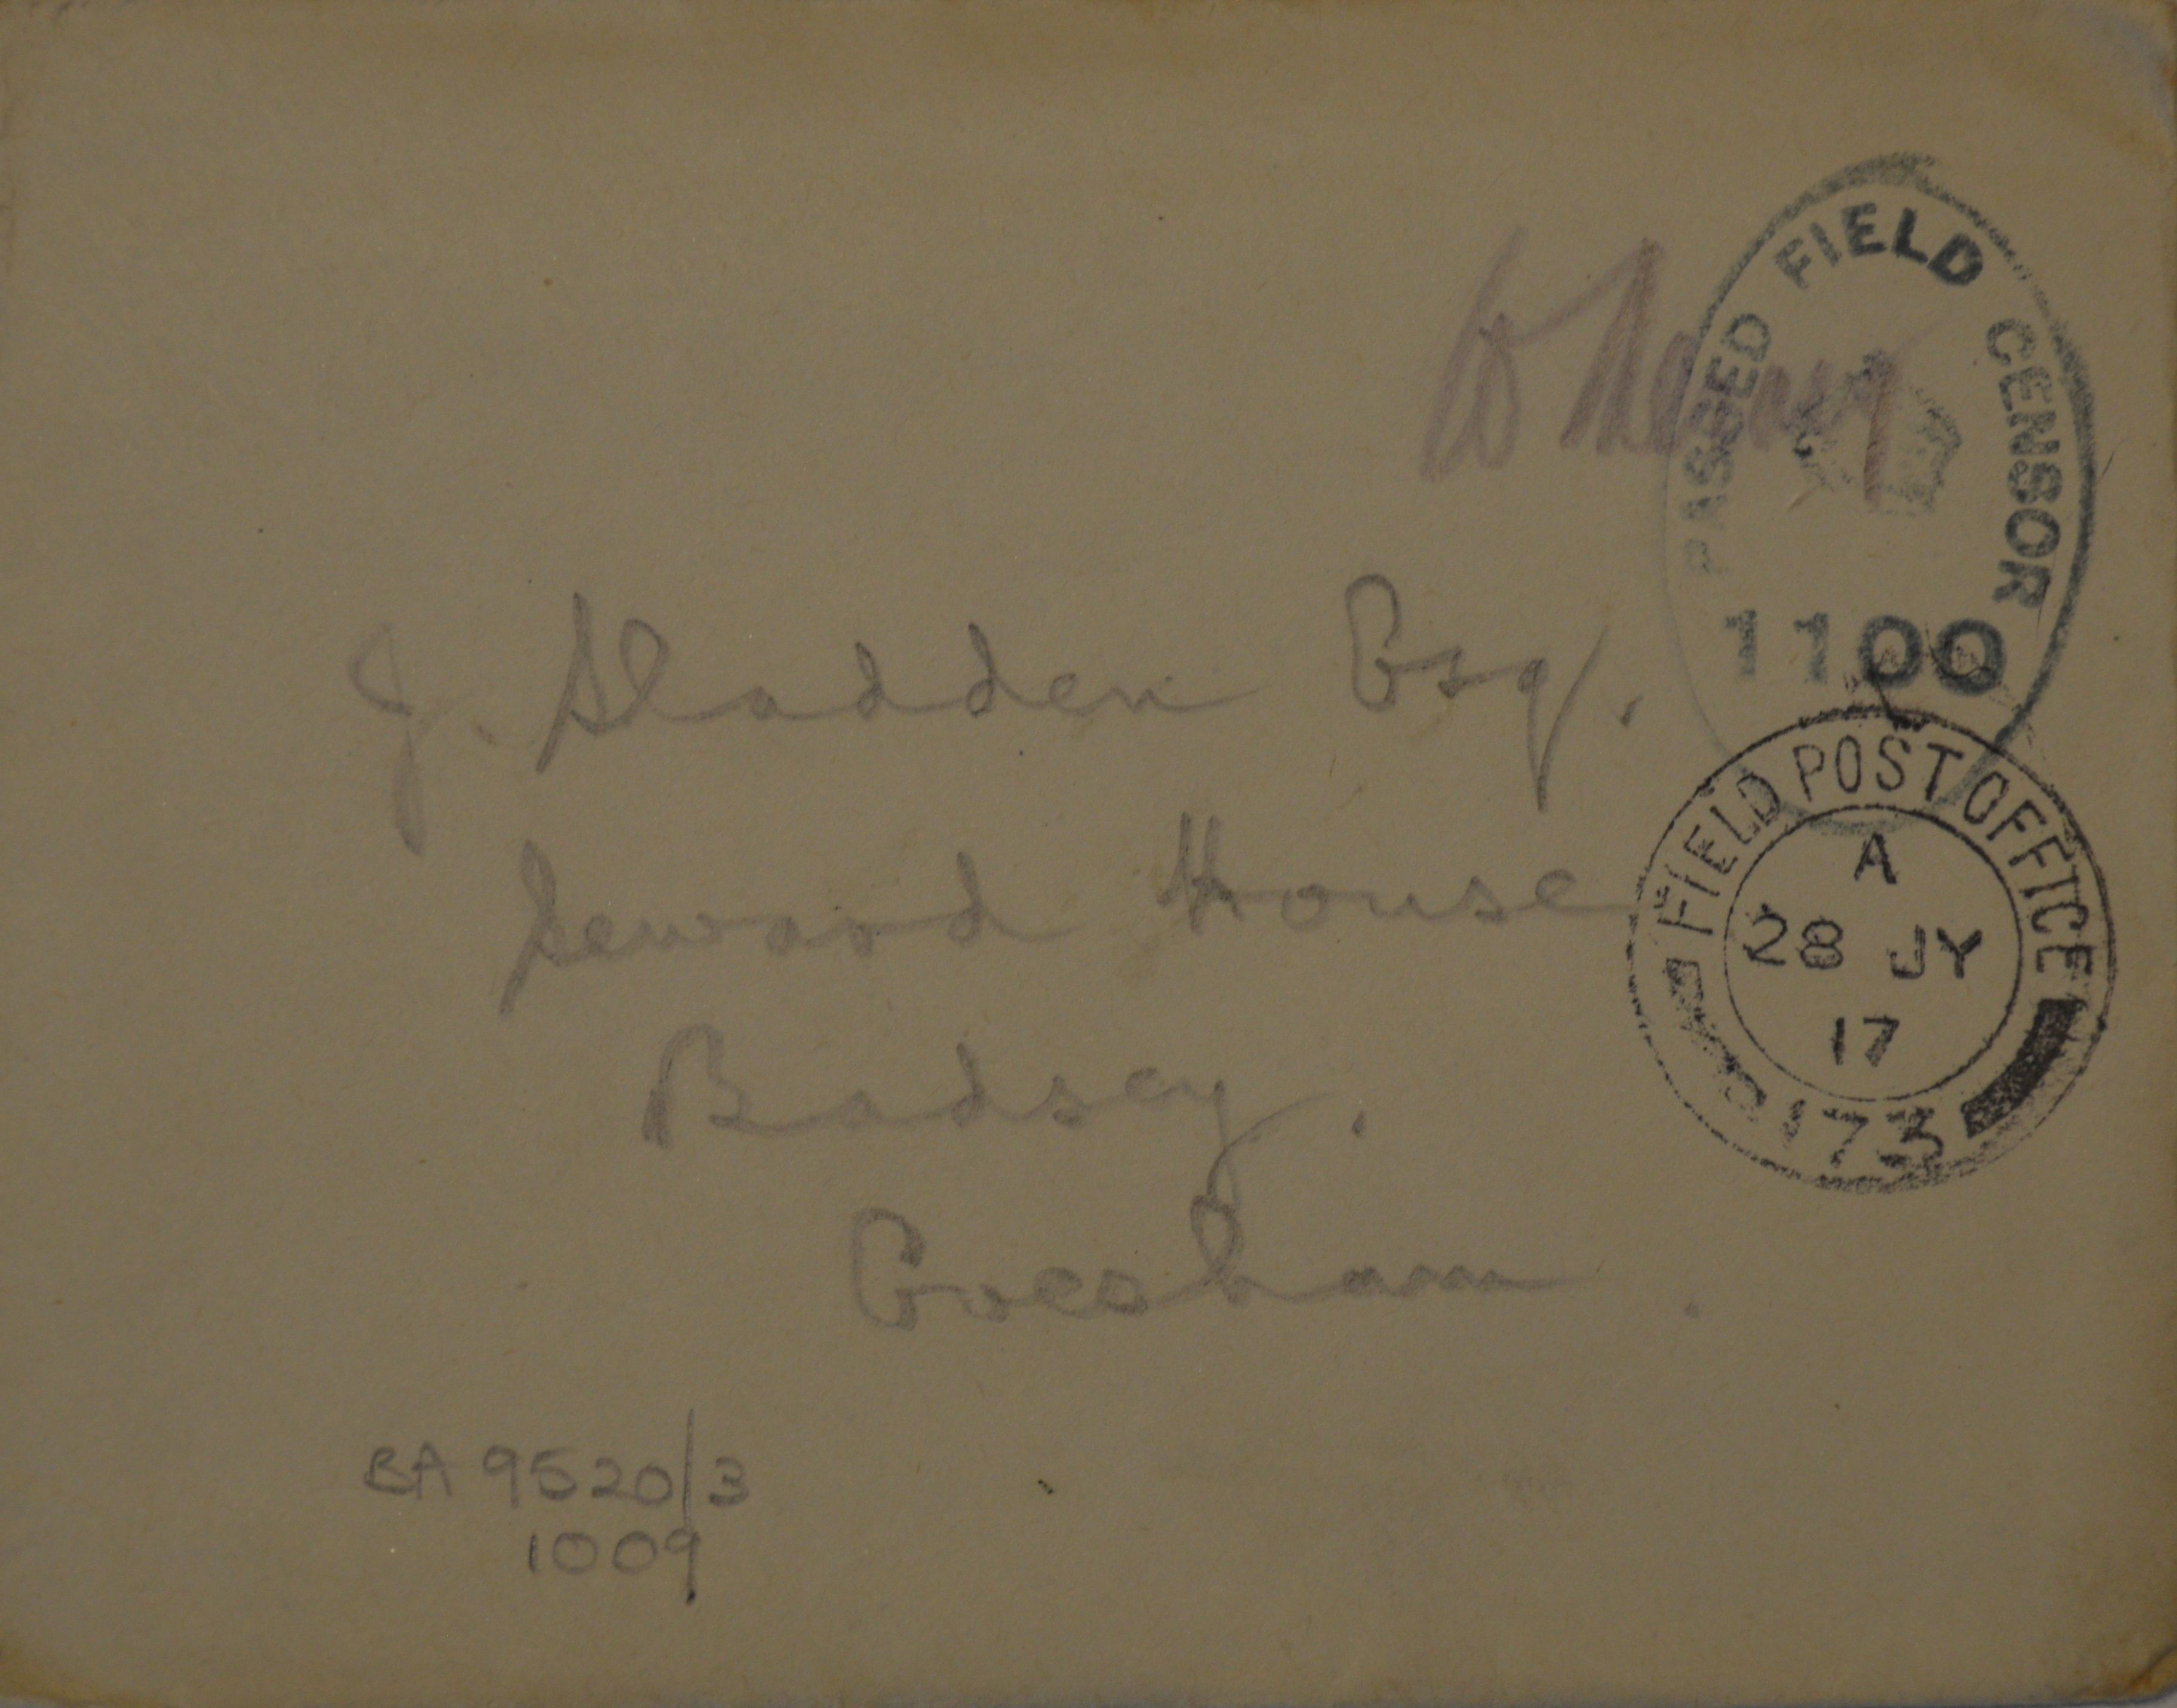 PASSED FIELD CENSOR
1100
J. Sladden Esq.
Seward House
Badsey.
Evesham.
FIELD POST OFFICE
A
28 JY
17
173
BA 9520/3
1009